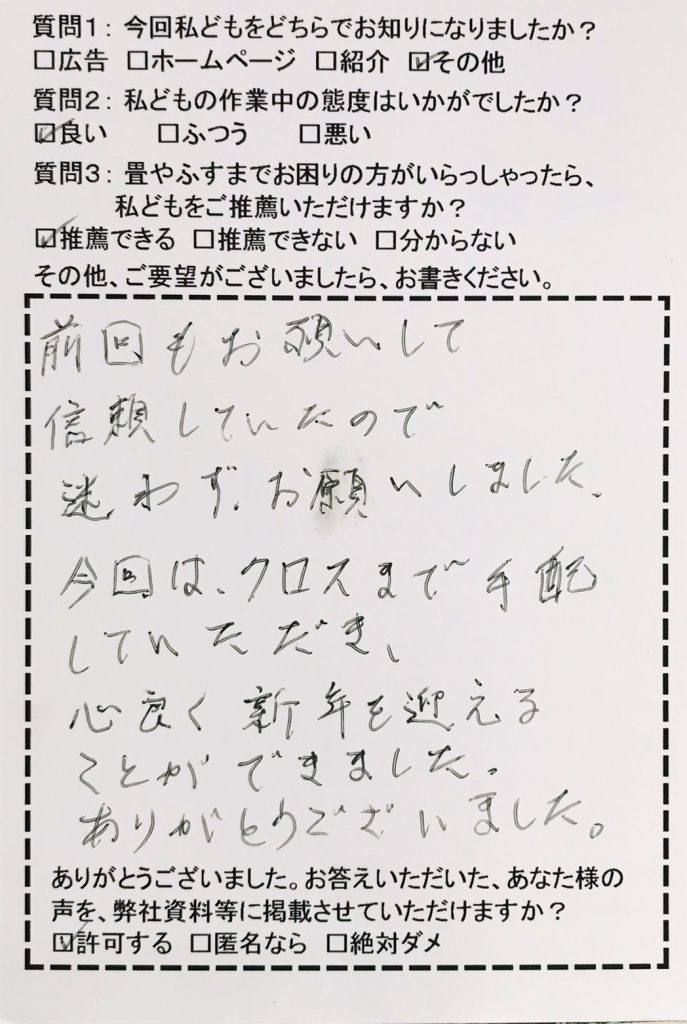 質問1：今回私どもをどちらでお知りになりましたか？
□広告 □ホームページ □紹介 ☑その他
質問2：私どもの作業中の態度はいかがでしたか？
☑良い □ふつう □悪い
質問3：畳やふすまでお困りの方がいらっしゃったら、
私どもをご推薦いただけますか？
☑推薦できる □推薦できない □分からない
その他、ご要望がございましたら、お書きください。
前回もお願いして
信頼していたので
迷わず、お願いしました。
今回は、クロスまで手配
していただき、
心良く新年を迎える
ことができました。
ありがとうございました。
ありがとうございました。お答えいただいた、あなた様の
声を、弊社資料等に掲載させていただけますか？
☑許可する □匿名なら □絶対ダメ